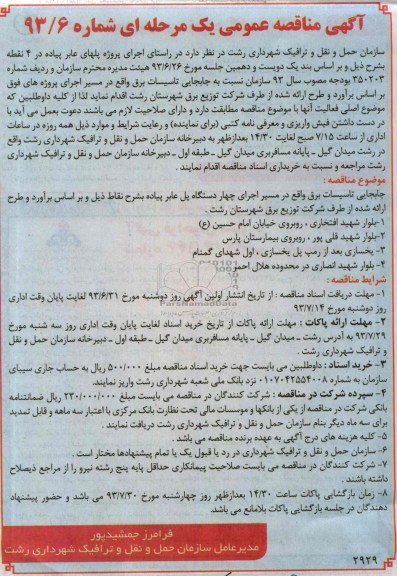 آگهی مناقصه عمومی یک مرحله ای شماره ۹۳/۶
سازمان حمل و نقل و ترافیک شهرداری رشت در نظر دارد در راستای اجرای پروژه پلهای عابر پیاده در ۴ نقطه
بشرح ذیل و بر اساس بند یک دویست و دهمین جلسه مورخ ۹۳/۶/۲۶ هیئت مدیره محترم سازمان و ردیف شماره
۳۵۰۲۰۳ بودجه مصوب سال ۹۳ سازمان نسبت به جابجایی تاسیسات برق واقع در مسیر اجرای پروژه های فوق
بر اساس برآورد و طرح ارائه شده از طرف شرکت توزیع برق شهرستان رشت اقدام نماید لذا از کلیه داوطلبین که
موضوع اصلی فعالیت آنها با موضوع مناقصه مطابقت دارد و دارای صلاحیت لازم می باشند دعوت بعمل می آید با
در دست داشتن فیش واریزی و معرفی نامه کتبی (برای نماینده) و رعایت شرایط و موارد ذیل همه روزه در ساعات
اداری از ساعت ۷/۱۵ صبح لغایت ۱۴/۳۰ بعدازظهر به دبیرخانه سازمان حمل و نقل و ترافیک شهرداری رشت واقع
در رشت میدان گیل ـ پایانه مسافربری میدان گیل ـ طبقه اول ـ دبیرخانه سازمان حمل و نقل و ترافیک شهرداری
رشت مراجعه و نسبت به خریداری اسناد مناقصه اقدام نمایند .
موضوع مناقصه :
جابجایی تاسیسات برق واقع در مسیر اجرای چهار دستگاه پل عابر پیاده بشرح نقاط ذیل و بر اساس برآورد و طرح
ارائه شده از طرف شرکت توزیع برق شهرستان رشت .
۱-بلوار شهید افتخاری ، روبروی خیابان امام حسین (ع)
۲-بلوار شهید قلی پور ، روبروی بیمارستان پارس
۳- یخسازی بعد از رمپ پل یخسازی ، اول شهدای گمنام
۴- بلوار شهید انصاری در محدوده هلال احمر
شرایط مناقصه :
۱- مهلت دریافت اسناد مناقصه : از تاریخ انتشار اولین آگهی روز دوشنبه مورخ ۹۳/۶/۳۱ لغایت پایان وقت اداری
روز دوشنبه مورخ ۹۳/۷/۱۴
۲- مهلت ارائه پاکات : مهلت ارائه پاکات از تاریخ خرید اسناد لغایت پایان وقت اداری روز سه شنبه مورخ
۹۳/۷/۲۹ به آدرس رشت ـ میدان گیل ـ پایانه مسافربری میدان گیل ـ طبقه اول ـ دبیرخانه سازمان حمل و نقل
و ترافیک شهرداری رشت .
۳- خرید اسناد : داوطلبین می بایست جهت خرید اسناد مناقصه مبلغ ۵۰۰/۰۰۰ ریال به حساب جاری سیبای
سازمان به شماره ۰۱۰۷۰۴۲۵۵۴۰۰۸ نزد بانک ملی شعبه شهرداری رشت واریز نمایند.
۴- سپرده شرکت در مناقصه : شرکت کنندگان در مناقصه می بایست مبلغ ۲۳۰/۰۰۰/۰۰۰ ریال ضمانتنامه
بانکی شرکت در مناقصه از یکی از بانکها و موسسات مالی تحت نظارت بانک مرکزی با اعتبار سه ماهه و قابل تمدید
برای سه ماه دیگر بنام سازمان حمل و نقل و ترافیک شهرداری رشت دریافت نمایند .
۵- کلیه هزینه های درج آگهی به عهده برنده مناقصه می باشد .
۶- سازمان حمل و نقل و ترافیک شهرداری در رد یا قبول یک یا تمام پیشنهادها مختار است .
۷- شرکت کنندگان در مناقصه می بایست صلاحیت پیمانکاری حداقل پایه پنج رشته نیرو را از مراجع ذیصلاح
داشته باشند .
۸- زمان بازگشایی پاکات ساعت ۱۴/۳۰ بعدازظهر روز چهارشنبه مورخ ۹۳/۷/۳۰ می باشد و حضور پیشنهاد
دهندگان در جلسه بازگشایی پاکات بلامانع می باشد.
فرامرز جمشیدپور
مدیرعامل سازمان حمل و نقل و ترافیک شهرداری رشت
۲۹۲۹
ParsNamadData